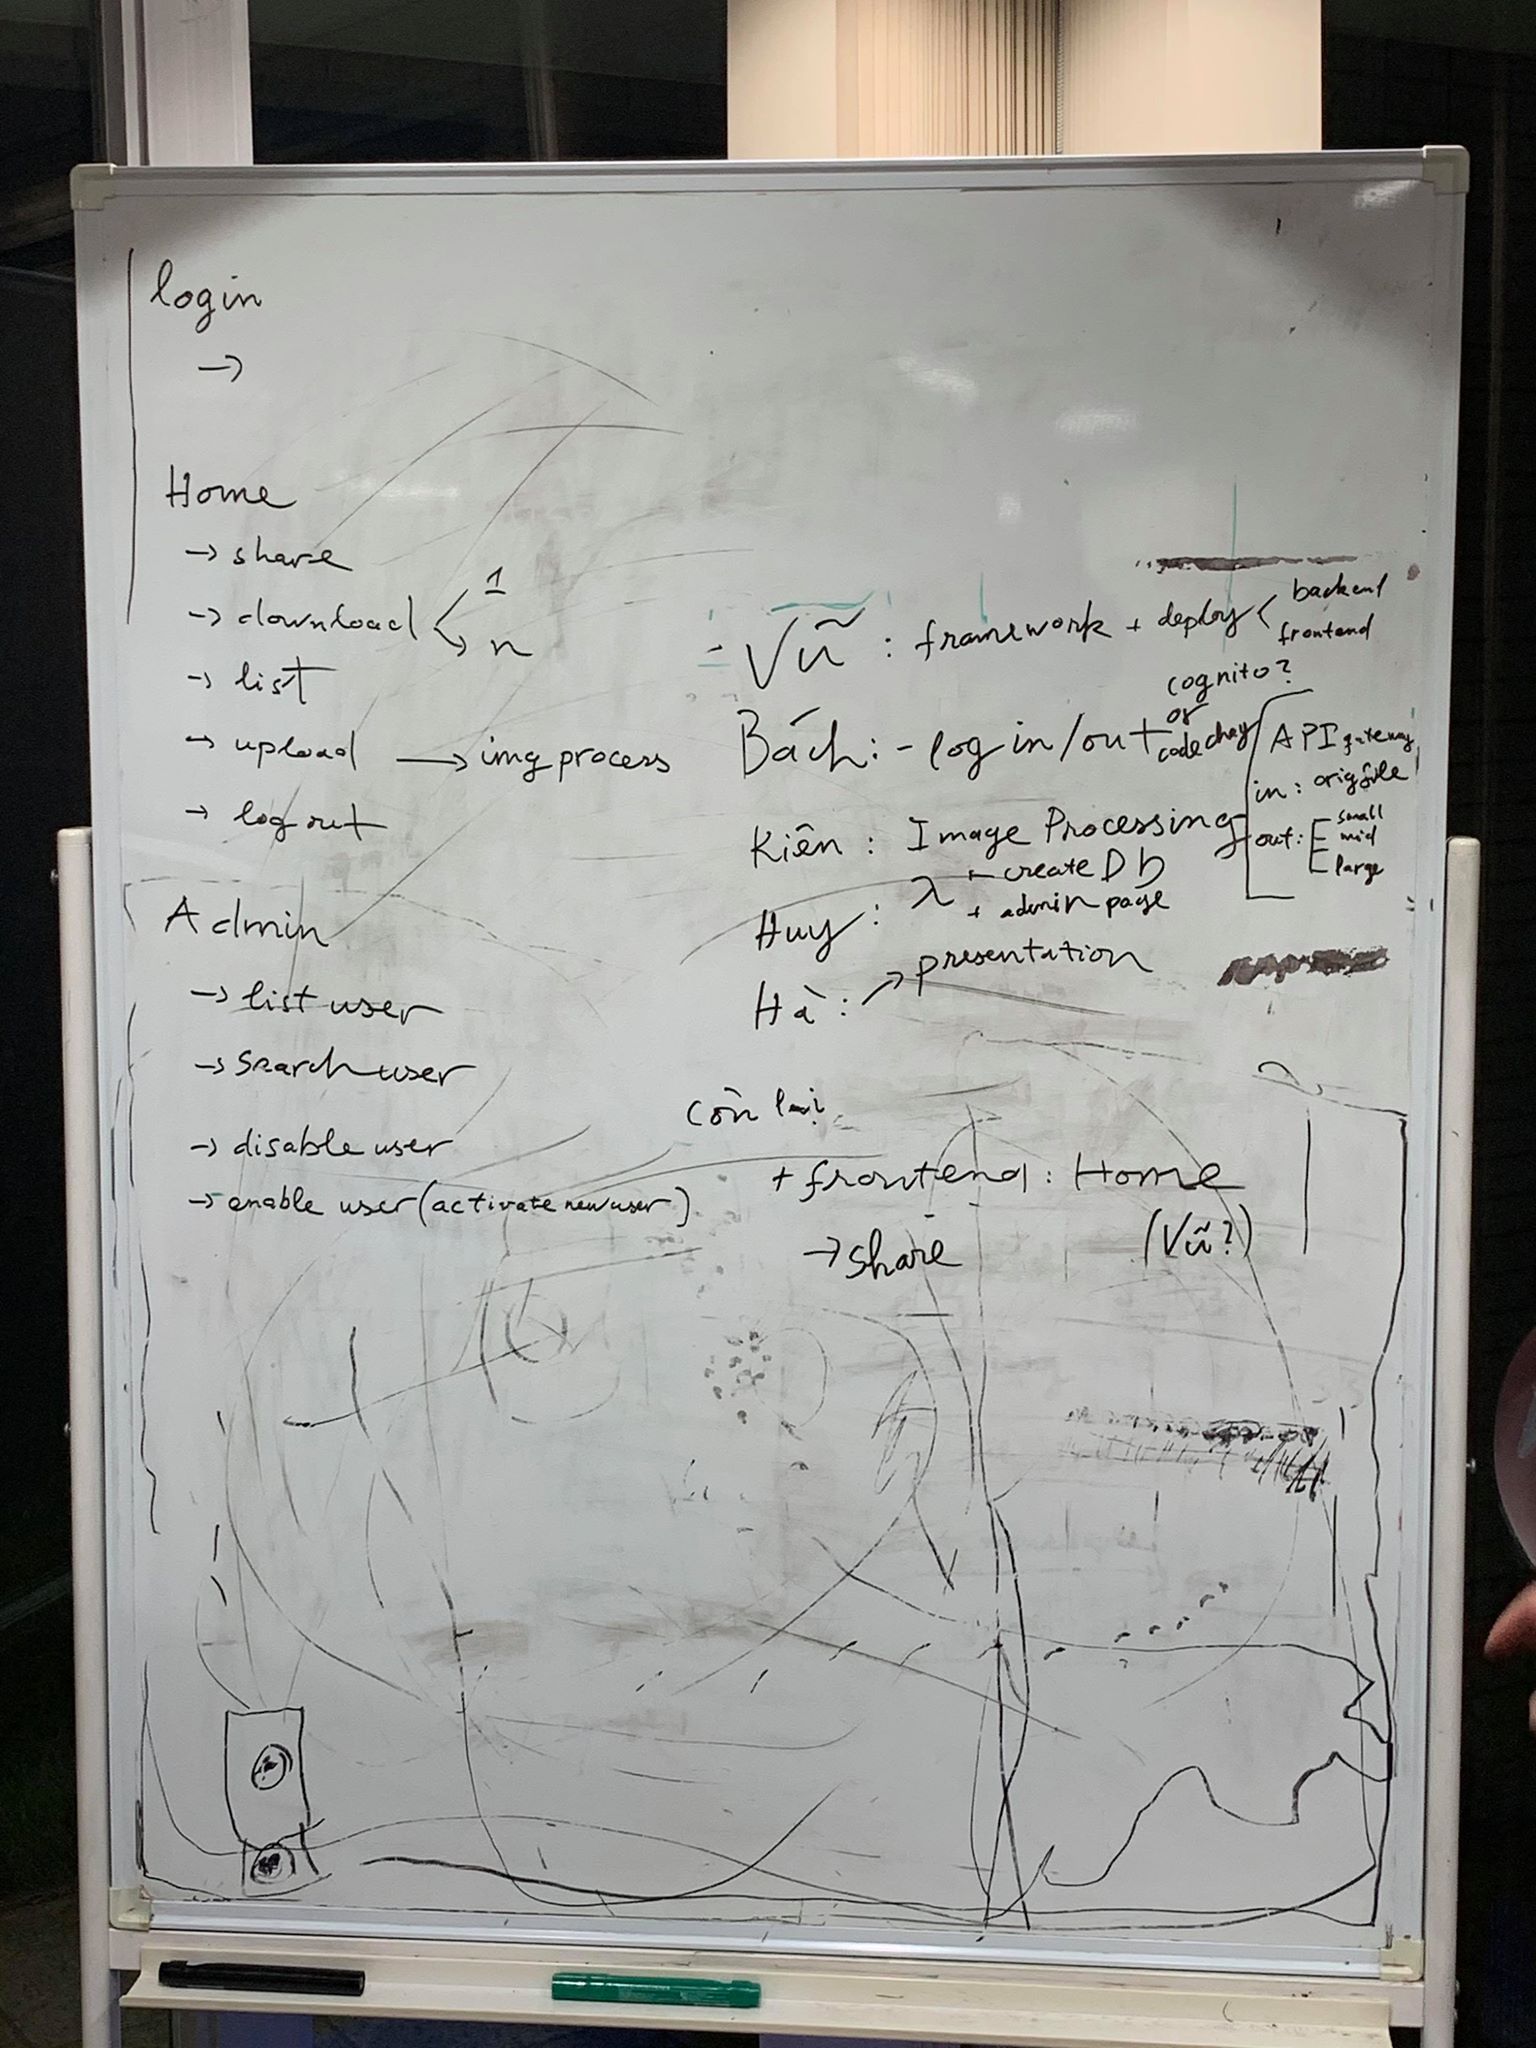 login
→
Home
→ share
→ download < 1
n
→ list
→ upload → img process
→ log out
Admin
→ list user
→ search user
→ disable user
→ enable user (activate new user)
- Vũ : framework + deploy < backend
frontend
Bách: - log in/out cognito?
or
code chay
Kiên : Image Processing
API gateway
in : orig file
out: small
mid
large
Huy : λ + create Db
+ admin page
Hà : → presentation
còn lại
+ frontend : Home
→ share (Vũ?)